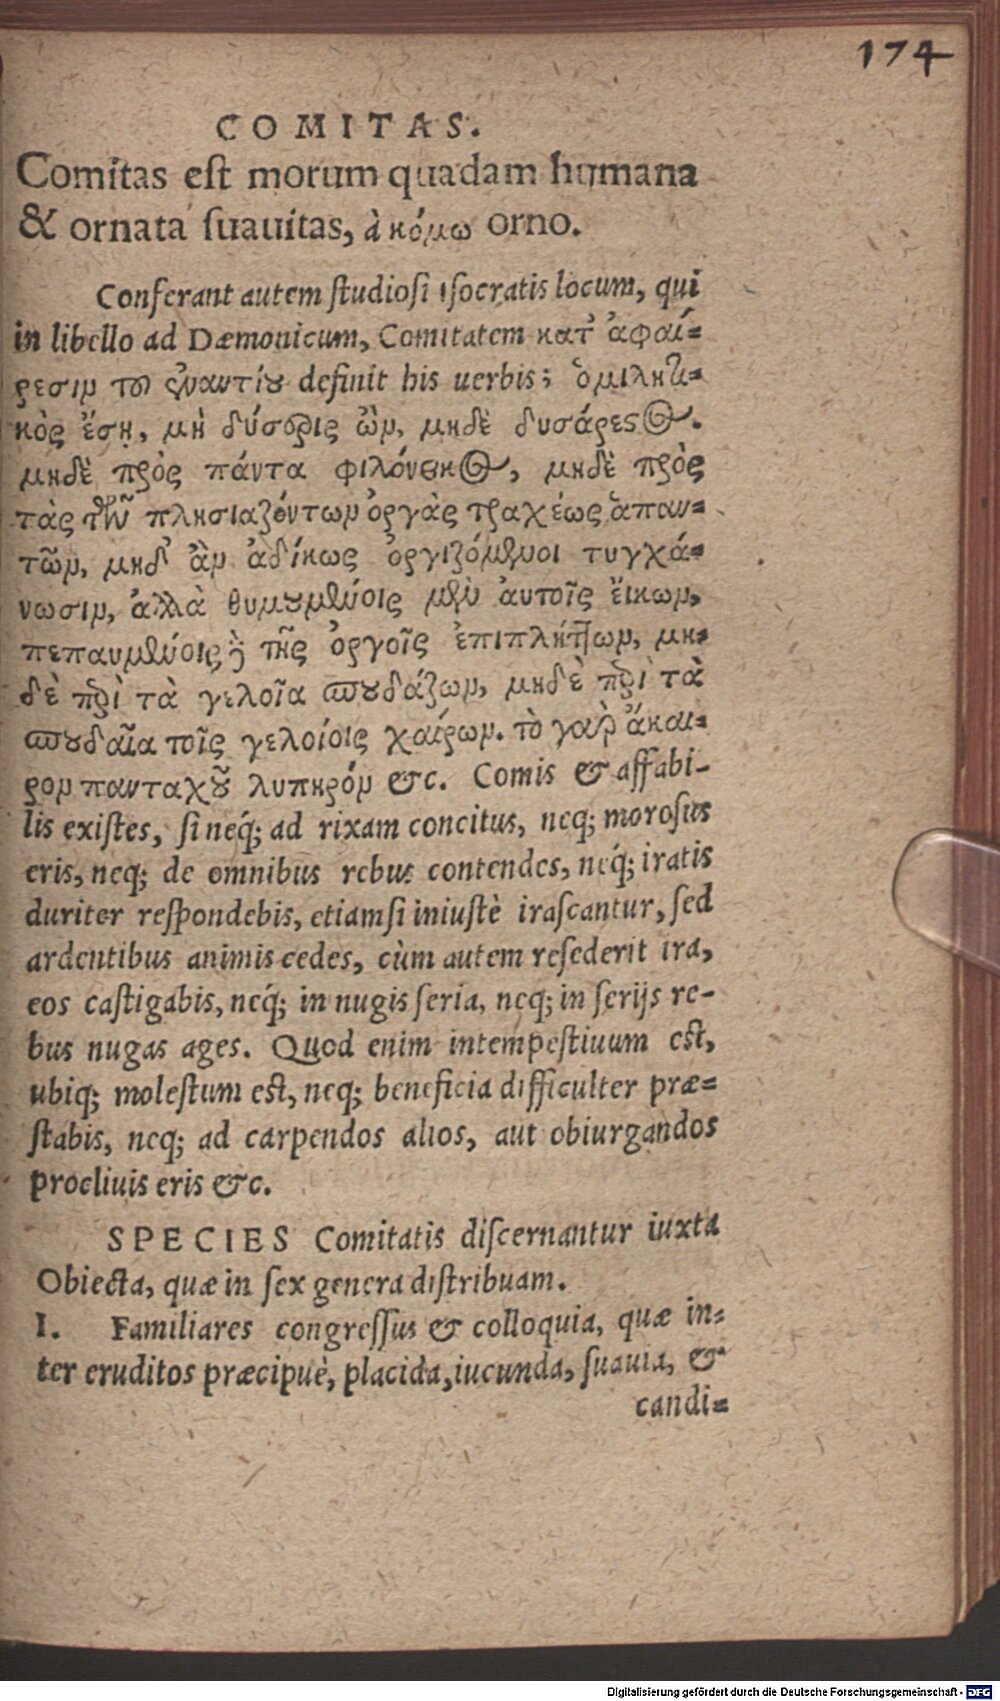 174
COMITAS.
Comitas est morum quadam humana
& ornata suauitas, à κόμω orno.
Conferant autem studiosi Isocratis locum, qui
in libello ad Dæmonicum, Comitatem κατ' ἀφαί=
ρεσιν τοῦ ἐναντίου definit his uerbis; ὁμιλητι=
κὸς ἔσῃ, μὴ δύσερις ὢν, μηδὲ δυσάρεστος.
μηδὲ πρὸς πάντα φιλόνεικος, μηδὲ πρὸς
τὰς τῶν πλησιαζόντων ὀργὰς τραχέως ἀπαν=
τῶν, μηδ' ἂν ἀδίκως ὀργιζόμενοι τυγχά=
νωσιν, ἀλλὰ θυμουμένοις μὲν αὐτοῖς εἴκων,
πεπαυμένοις δὲ τῆς ὀργοῖς ἐπιπλήττων, μη=
δὲ περὶ τὰ γελοῖα σπουδάζων, μηδὲ περὶ τὰ
σπουδαῖα τοῖς γελοίοις χαίρων. τὸ γὰρ ἄκαι=
ρον πανταχοῦ λυπηρόν &c. Comis & affabi-
lis existes, si neq́; ad rixam concitus, neq; morosus
eris, neq; de omnibus rebus contendes, neq́; iratis
duriter respondebis, etiamsi iniustè irascantur, sed
ardentibus animis cedes, cùm autem resederit ira,
eos castigabis, neq́; in nugis seria, neq; in serijs re-
bus nugas ages. Quod enim intempestiuum est,
ubiq; molestum est, neq; beneficia difficulter præ=
stabis, neq; ad carpendos alios, aut obiurgandos
procliuis eris &c.
SPECIES Comitatis discernantur iuxta
Obiecta, quæ in sex genera distribuam.
I. Familiares congressus & colloquia, quæ in=
ter eruditos præcipuè, placida, iucunda, suauia, &
candi=
Digitalisierung gefördert durch die Deutsche Forschungsgemeinschaft - DFG